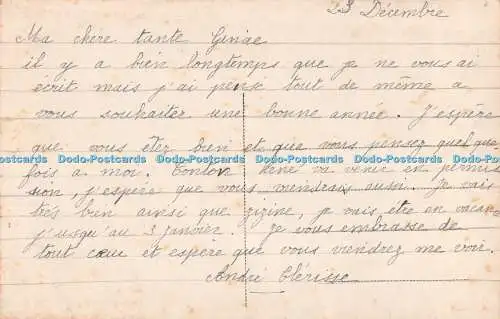 23 Décembre
Ma chère tante Geniae
il y a bien longtemps que je ne vous ai
écrit mais j'ai pensé tout de même a
vous souhaiter une bonne année. J'espère
que vous êtez bien et que vous pensez quelque
fois a moi. Tonton René va venir en permis
sion, j'espère que vous viendrez aussi. Je vais
très bien ainsi que zizine, je vais être en vacan
j'usqu'au 3 janvier. Je vous embrasse de
tout cœur et espère que vous viendrez me voir.
André Clérisse
Dodo-Postcards Dodo-Postcards Dodo-Postcards Dodo-Postcards Dodo-Postcards